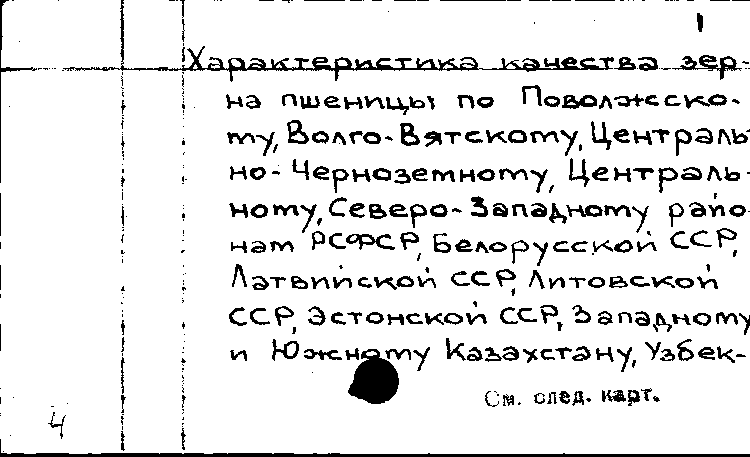 1
Характеристика качества зер-
на пшеницы по Поволжско-
му, Волго-Вятскому, Централь
но-Черноземному, Централь-
ному, Северо-Западному райо
нам РСФСР, Белорусской ССР,
Латвийской ССР, Литовской
ССР, Эстонской ССР, Западному
и Южному Казахстану, Узбек-
См. след. карт.
4